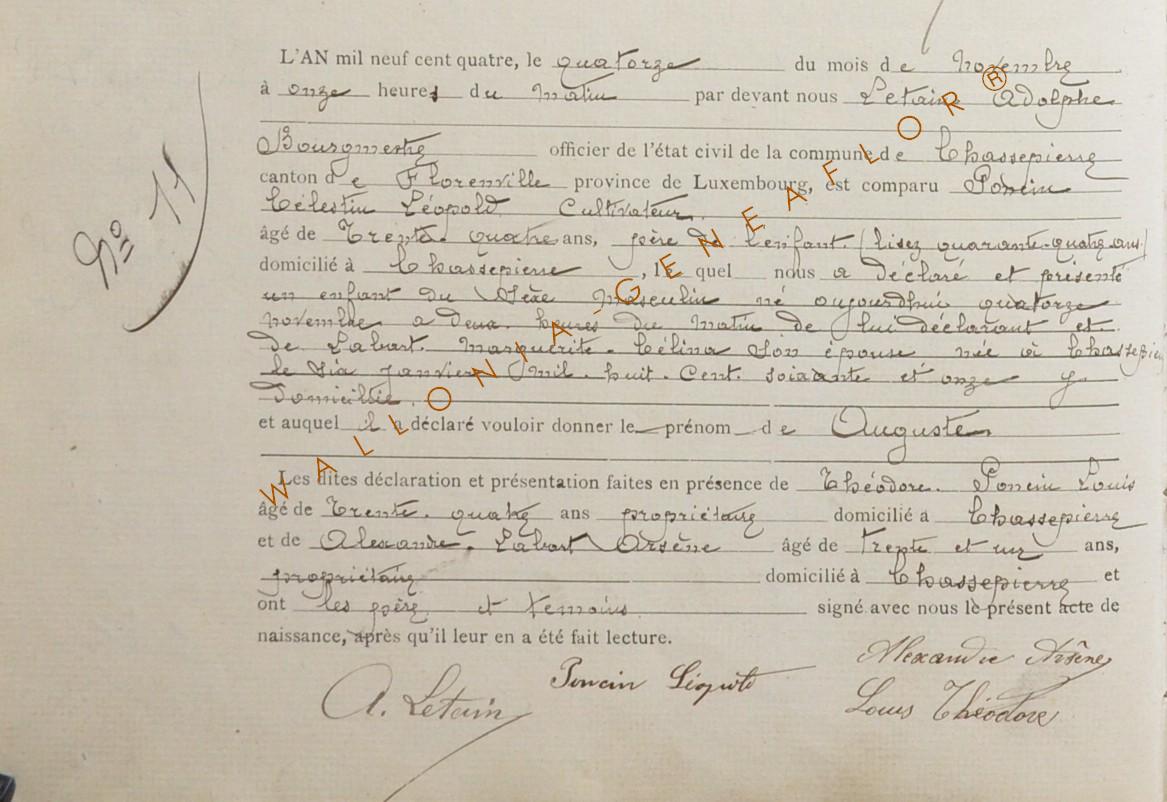 Nº 11
L'AN mil neuf cent quatre, le quatorze du mois de Novembre
à onze heures du matin par devant nous Letain Adolphe
Bourgmestre officier de l'état civil de la commune de Chassepierre
canton de Florenville province de Luxembourg, est comparu Poncin
Célestin Léopold Cultivateur
âgé de Trente. quatre ans, père de l'enfant. (lisez quarante-quatre ans)
domicilié à Chassepierre, le quel nous a déclaré et présenté
un enfant du Sexe Masculin né aujourdhui quatorze
novembre a deux heures du matin de lui déclarant et
de Labart. Marguerite. Célina Son épouse née à Chassepierre
le Six janvier mil. huit. Cent. soixante et onze y
domiciliée.
et auquel il a déclaré vouloir donner le prénom de Auguste
Les dites déclaration et présentation faites en présence de Théodore. Poncin Louis
âgé de Trente. quatre ans propriétaire domicilié a Chassepierre
et de Alexandre. Labart Arsène âgé de Trente et un ans,
propriétaire domicilié à Chassepierre et
ont les père et temoins signé avec nous le présent acte de
naissance, après qu'il leur en a été fait lecture.
A. Letain Poncin Léopold Alexandre Arsène
Louis Théodore
WALLONIA-GENEAFLOR®